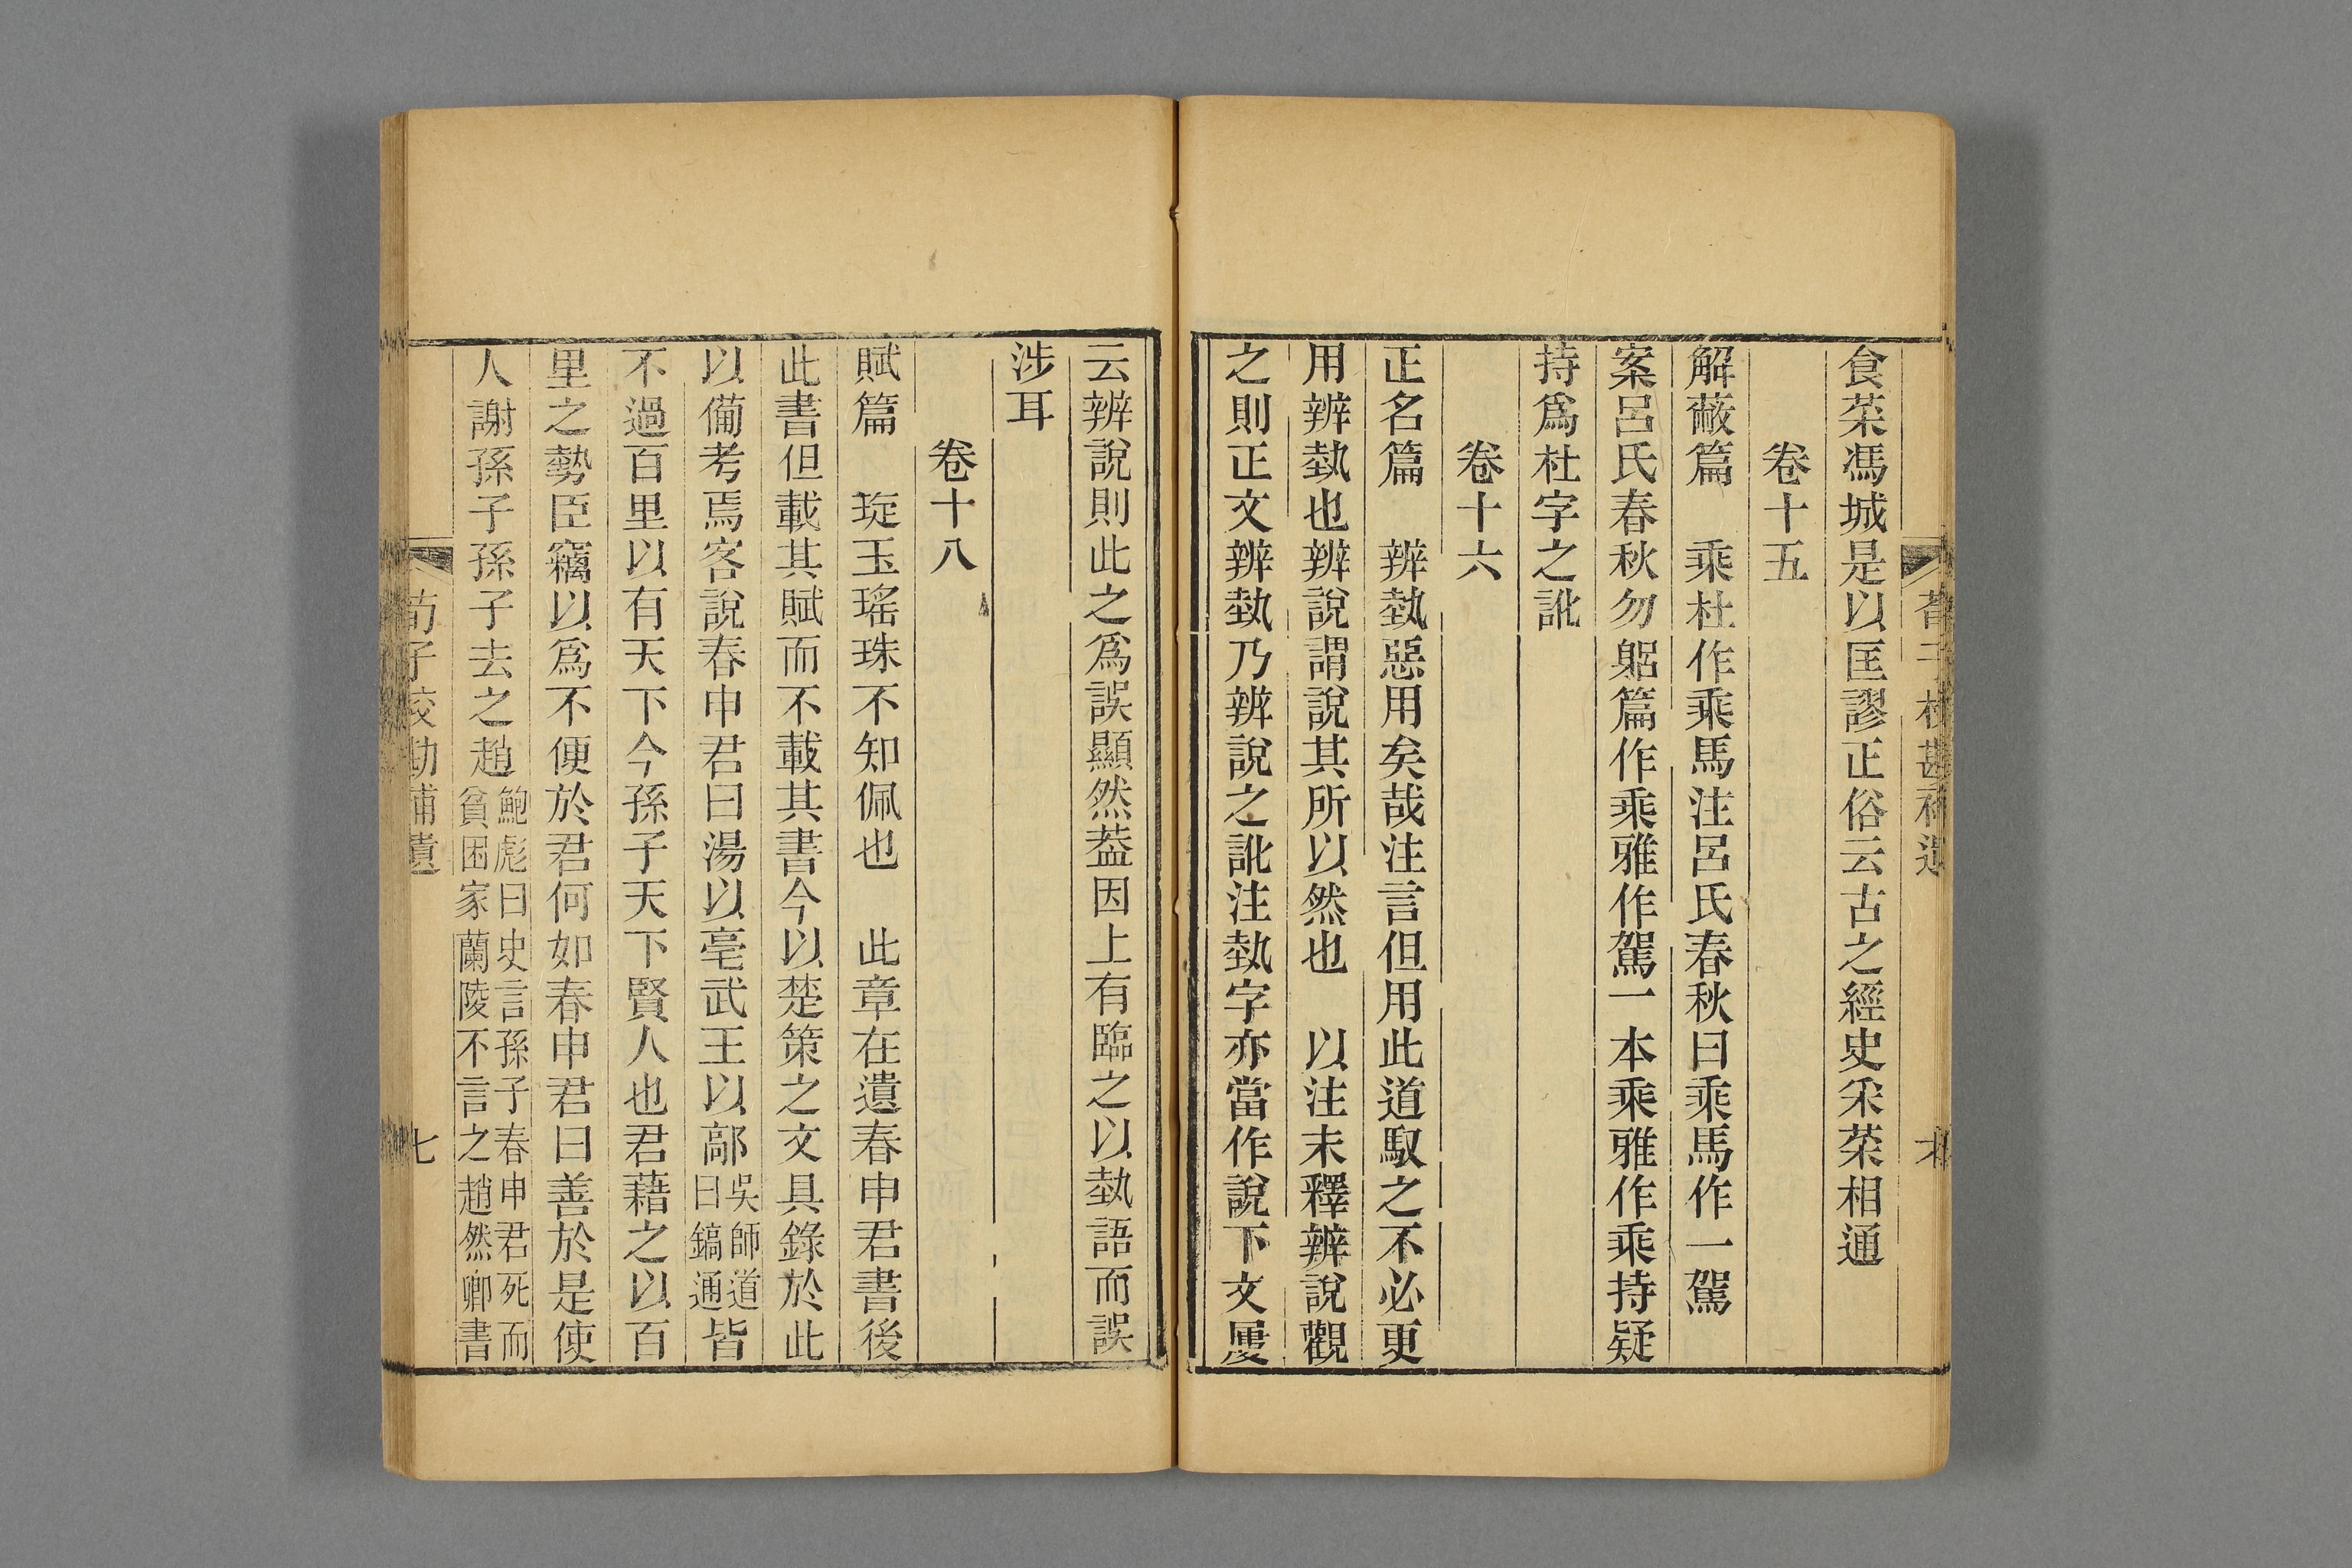 食菜馮城是以匡謬正俗云古之經史采菜相通
卷十五
解蔽篇　乘杜作乘馬注呂氏春秋曰乘馬作一駕
案呂氏春秋勿躬篇作乘雅作駕一本乘雅作乘持疑
持爲杜字之訛
卷十六
正名篇　辨埶惡用矣哉注言但用此道馭之不必更
用辨埶也辨說謂說其所以然也　以注末釋辨說觀
之則正文辨埶乃辨說之訛注埶字亦當作說下文屢
云辨說則此之爲誤顯然葢因上有臨之以埶語而誤
涉耳
卷十八
賦篇　琁玉瑤珠不知佩也　此章在遺春申君書後
此書但載其賦而不載其書今以楚策之文具錄於此
以備考焉客說春申君曰湯以亳武王以鄗吳師道曰鎬通皆
不過百里以有天下今孫子天下賢人也君藉之以百
里之勢臣竊以爲不便於君何如春申君曰善於是使
人謝孫子孫子去之趙鮑彪曰史言孫子春申君死而貧困家蘭陵不言之趙然卿書
荀子校勘補遺
七